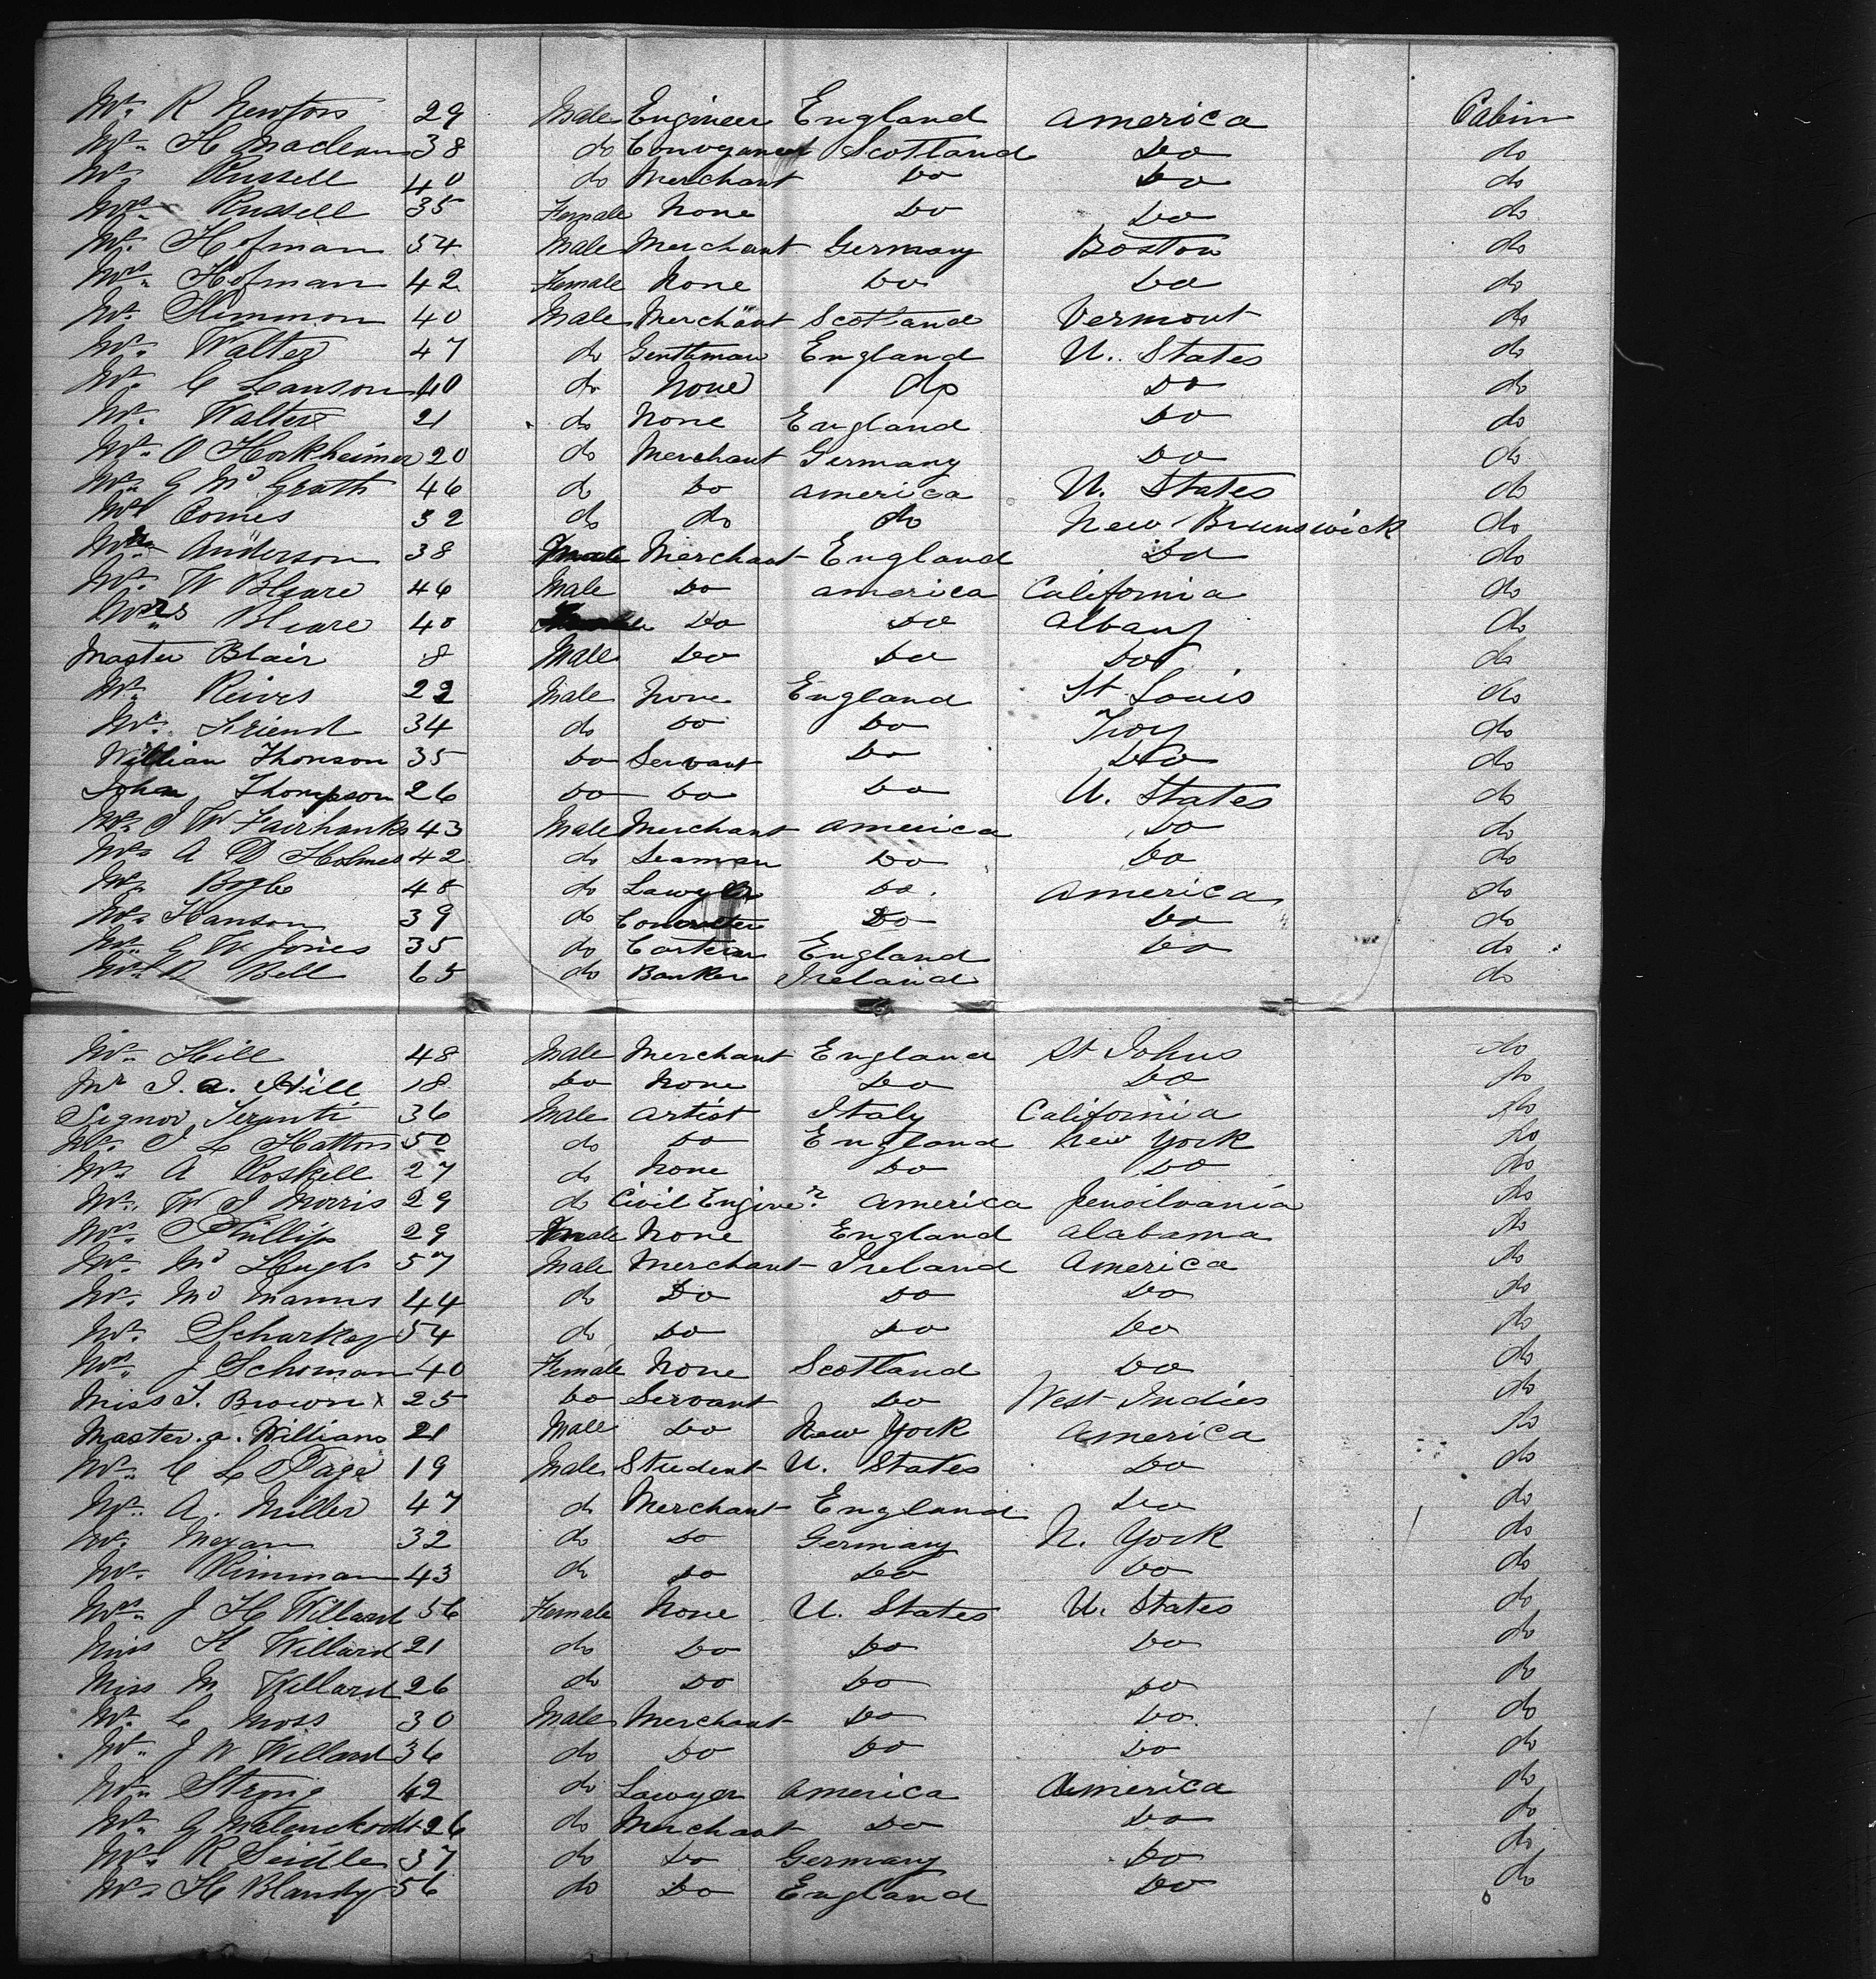 Mr. R Newton 29 Male Engineer England America Cabin
Mr. H Maclean 38 do Conveyancer Scotland Do do
Mr. Russell 40 do Merchant Do Do do
Mrs. Russell 35 Female None Do Do do
Mr. Hofman 54 Male Merchant Germany Boston do
Mrs. Hofman 42 Female None Do Do do
Mr. Kimmon 40 Male Merchant Scotland Vermont do
Mr. Walter 47 do Gentleman England U. States do
Mr. C Lanson 40 do None do Do do
Mr. Walter 21 do None England Do do
Mr. O Horkheimer 20 do Merchant Germany Do do
Mr. G Mc Grath 46 do Do America U. States do
Mr. Comes 32 do do do New Brunswick do
Anderson 38 Merchant England Do do
Mr. W Bleare 46 Male Do America California do
Mrs Bleare 40 Do Do Albany do
Master Blair 8 Male Do Do Do do
Mr. Reives 22 Male None England St Louis do
Mr. Friend 34 do Do Do Troy do
William Thonson 35 Do Servant Do Do do
John Thompson 26 Do Do Do U. States do
Mr. J W Fairbanks 43 Male Merchant America Do do
Mr. A D Holmes 42 do Seaman Do Do do
Mr. 48 do Lawyer Do. America do
Mr. Hanson 39 do Do Do do
Mr. G W Jones 35 do England Do do
Mr. R Bell 65 do Banker Ireland do
Mr. Hill 48 Male Merchant England St Johns do
Mr J. a. Hill 18 Do None Do Do do
Signor 36 Male Artist Italy California do
Mr. J L Hatton 50 do Do England New York do
Mr. A Roskell 27 do None Do Do do
Mr. W J Morris 29 do Civil Enginer America Pensilvania do
Mrs. Phillips 29 None England Alabama do
Mr. Mc Hugh 57 Male Merchant Ireland America do
Mr. Mc Manus 44 do Do Do Do do
Mr. Scharkey 54 do Do Do Do do
Mrs. J Schoman 40 Female None Scotland Do do
Miss J. Brown x 25 Do Servant Do West Indies do
Master. a. Willians 21 Male Do New York America do
Mr. C L Page 19 Male Student U. States Do do
Mr. A. Miller 47 do Merchant England Do do
Mr. Megan 32 do Do Germany N. York do
Mr. Rimman 43 do Do Do Do do
Mrs. J H Willard 56 Female None U. States U. States do
Miss H Willard 21 do Do Do Do do
Miss M Willard 26 do Do Do Do do
Mr. L Moss 30 Male Merchant Do Do do
Mr. J W Willard 36 do Do Do Do do
Mr. Strong 42 do Lawyer America America do
Mr. G 26 do Merchant Do Do do
Mr. R Seidle 37 do Do Germany Do do
Mr. H Blandy 56 do Do England Do do